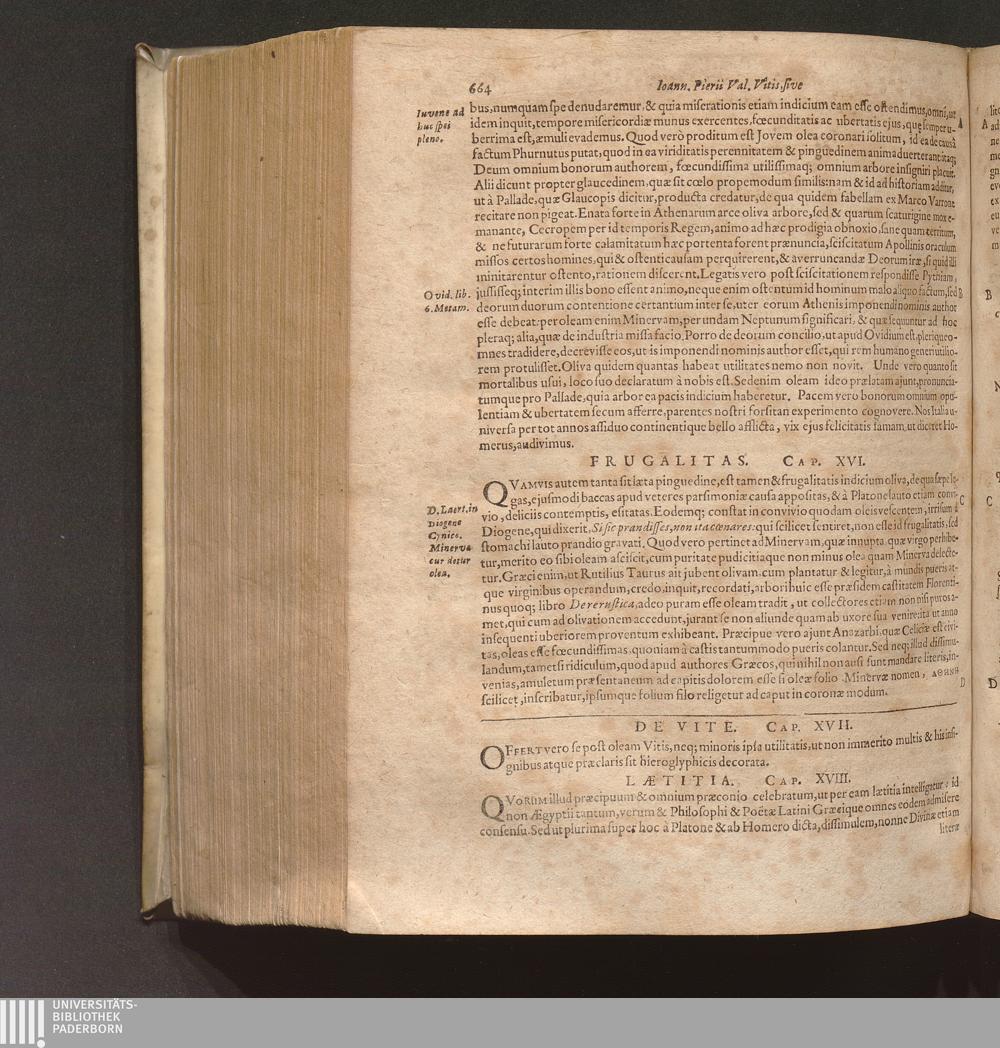 664
Ioann. Pierii Val. Vitis, sive
bus, numquam spe denudaremur, & quia miserationis etiam indicium eam esse ostendimus, omni, ut
Iuvene ad
huc spei
pleno.
idem inquit, tempore misericordiæ munus exercentes, fœcunditatis ac ubertatis ejus, quę semper u- A
berrima est, æmuli evademus. Quod verò proditum est Jovem olea coronari solitum, id ea de causâ
factum Phurnutus putat, quod in ea viriditatis perennitatem & pinguedinem animaduerterant: itaq;
Deum omnium bonorum authorem, fœcundissima utilissimaq; omnium arbore insigniri placuit.
Alii dicunt propter glaucedinem, quæ sit cœlo propemodum similis: nam & id ad historiam additur,
ut à Pallade, quæ Glaucopis dicitur, producta credatur, de qua quidem fabellam ex Marco Varrone
recitare non pigeat. Enata forte in Athenarum arce oliva arbore, sed & quarum scaturigine mox e-
manante, Cecropem per id temporis Regem, animo ad hæc prodigia obnoxio, sane quam territum,
& ne futurarum forte calamitatum hæc portenta forent prænuncia, sciscitatum Apollinis oraculum
missos certos homines, qui & ostenti causam perquirerent, & averruncandæ Deorum iræ, si quid illi
minitarentur ostento, rationem discerent. Legatis vero post sciscitationem respondisse Pythiam,
Ovid. lib.
6. Metam.
jussisseq; interim illis bono essent animo, neque enim ostentum id hominum malo aliquo factum, sed B
deorum duorum contentione certantium inter se, uter eorum Athenis imponendi nominis author
esse debeat: per oleam enim Minervam, per undam Neptunum significari, & quæ sequuntur ad hoc
pleraq; alia, quæ de industria missa facio. Porro de deorum concilio, ut apud Ovidium est, plerique o-
mnes tradidere, decrevisse eos, ut is imponendi nominis author esset, qui rem humano generi utilio-
rem protulisset. Oliva quidem quantas habeat utilitates nemo non novit. Unde vero quanto sit
mortalibus usui, loco suo declaratum à nobis est. Sed enim oleam ideo prælatam ajunt, pronuncia-
tumque pro Pallade, quia arbor ea pacis indicium haberetur. Pacem vero bonorum omnium opu-
lentiam & ubertatem secum afferre, parentes nostri forsitan experimento cognovere. Nos Italia u-
niversa per tot annos assiduo continentique bello afflicta, vix ejus felicitatis famam, ut diceret Ho-
merus, audivimus.
FRUGALITAS. CAP. XVI.
QVAMVIS autem tanta sit læta pinguedine, est tamen & frugalitatis indicium oliva, de qua sæpe le-
gas, ejusmodi baccas apud veteres parsimoniæ causa appositas, & à Platone lauto etiam convi- C
D. Laert. in
Diogene
Cynico.
Minerva
cur detur
olea.
vio, deliciis contemptis, esitatas. Eodemq; constat in convivio quodam oleis vescentem, irrisum à
Diogene, qui dixerit, Si sic prandisses, non ita cœnares: qui scilicet sentiret, non esse id frugalitatis, sed
stomachi lauto prandio gravati. Quod vero pertinet ad Minervam, quæ innupta, quæ virgo perhibe-
tur, merito eo sibi oleam asciscit, cum puritate pudicitiaque non minus olea quam Minerva delecte-
tur. Græci enim, ut Rutilius Taurus ait jubent olivam, cum plantatur & legitur, à mundis pueris at-
que virginibus operandum, credo, inquit, recordati, arbori huic esse præsidem castitatem Florenti-
nus quoq; libro De re rustica, adeo puram esse oleam tradit, ut collectores etiam non nisi puros a-
met, qui cum ad olivationem accedunt, jurant se non aliunde quam ab uxore sua venire: ita ut anno
insequenti uberiorem proventum exhibeant. Præcipue vero ajunt Anazarbi, quæ Celiciæ est civi-
tas, oleas esse fœcundissimas, quoniam à castis tantummodo pueris colantur. Sed neq; illud dissimu-
landum, tametsi ridiculum, quod apud authores Græcos, qui nihil non ausi sunt mandare literis, in-
venias, amuletum præsentaneum ad capitis dolorem esse si oleæ folio Minervæ nomen, ΑΘΗΝΗ
scilicet, inscribatur, ipsumque folium filo religetur ad caput in coronæ modum. D
DE VITE. CAP. XVII.
OFFERT vero se post oleam Vitis, neq; minoris ipsa utilitatis, ut non immerito multis & his insi-
gnibus atque præclaris sit hieroglyphicis decorata.
LÆTITIA. CAP. XVIII.
QVORUM illud præcipuum & omnium præconio celebratum, ut per eam lætitia intelligatur: id
non Ægyptii tantum, verum & Philosophi & Poëtæ Latini Græcique omnes eodem admisere
consensu. Sed ut plurima super hoc à Platone & ab Homero dicta, dissimulem, nonne Divinæ etiam
literæ
UNIVERSITÄTS-
BIBLIOTHEK
PADERBORN